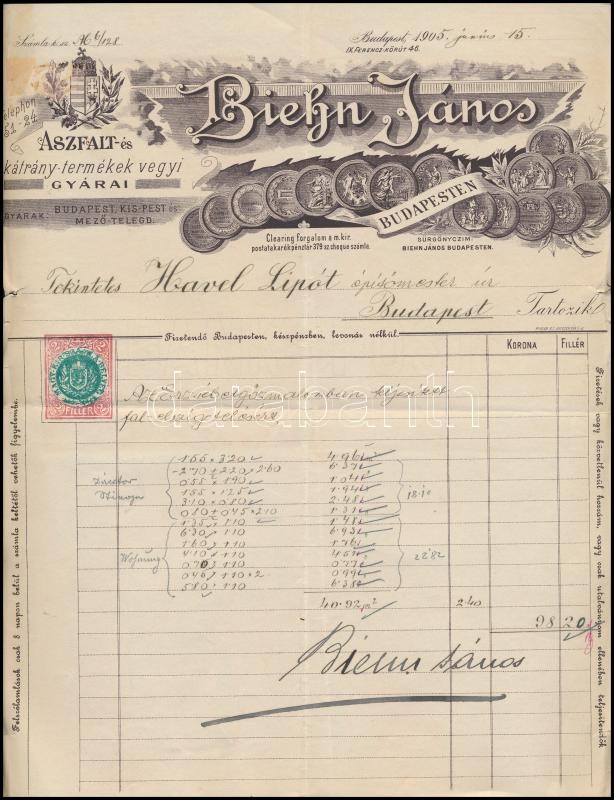 Számla k. sz. № 6/128
Budapest, 1905. junius 15.
IX. FERENCZ-KÖRÚT 46.
Telephon
51-24
Biehn János
ASZFALT-és
kátrány-termékek vegyi
GYÁRAI
BUDAPESTEN
GYÁRAK: BUDAPEST, KIS-PEST és
MEZŐ-TELEGD.
Clearing forgalom a m. kir.
postatakarékpénztár 379 sz. cheque számla.
SÜRGÖNYCZIM:
BIEHN JÁNOS BUDAPESTEN.
Tekintetes Havel Lipót épitőmester úr
Budapest Tartozik
Fizetendő Budapesten, készpénzben, levonás nélkül.
KORONA FILLÉR
2 2
2 FILLÉR 2
fal elszigetelésért
1·55 × 3·20 4·96
2·70 + 2·20 × 2·60 6·37
0·55 × 1·90 1·04
1·55 × 1·25 1·94
3·10 × 0·80 2·48
0·80 + 0·45 × 2·10 1·31
18·10
1·35 × 1·10 1·48
6·30 × 1·10 6·93
1·60 × 1·10 1·76
Wohnung
4·10 × 1·10 4·51
22·82
0·70 × 1·10 0·77
0·45 × 1·10 × 2 0·99
5·80 × 1·10 6·38
40·92 m² 2·40
98 20
Biehn János
Felszólamlások csak 8 napon belül a számla keltétől vehetők figyelembe.
Fizetések vagy közvetlenül hozzám, vagy csak utalványom ellenében teljesitendők
darabanth